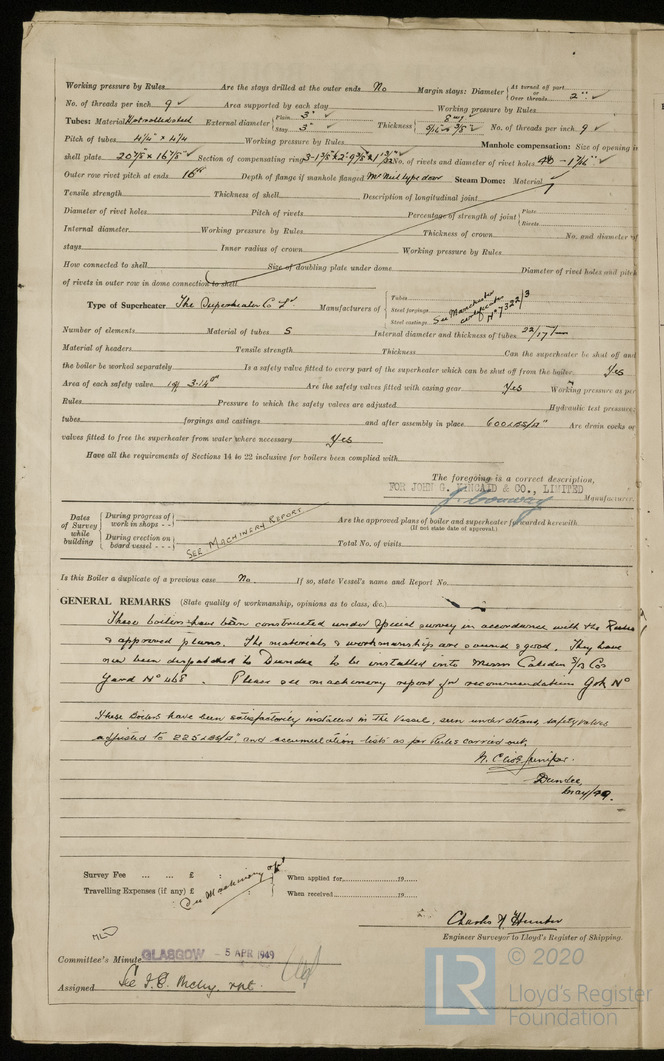 Working pressure by Rules Are the stays drilled at the outer ends No Margin stays: Diameter { At turned off part or Over threads 2" ✓
No. of threads per inch 9 ✓ Area supported by each stay Working pressure by Rules
Tubes: Material Hot rolled steel External diameter { Plain 3" ✓ Stay 3" ✓ Thickness { 8 wg ✓ 5/16" & 3/8" ✓ No. of threads per inch 9 ✓
Pitch of tubes 4 1/4" × 4 1/4 Working pressure by Rules Manhole compensation: Size of opening in
shell plate Section of compensating ring No. of rivets and diameter of rivet holes
Outer row rivet pitch at ends Depth of flange if manhole flanged McNeil type door Steam Dome: Material ✓
Tensile strength Thickness of shell Description of longitudinal joint
Diameter of rivet holes Pitch of rivets Percentage of strength of joint { Plate Rivets
Internal diameter Working pressure by Rules Thickness of crown No. and diameter of
stays Inner radius of crown Working pressure by Rules
How connected to shell Size of doubling plate under dome Diameter of rivet holes and pitch
of rivets in outer row in dome connection to shell
Type of Superheater The Superheater Co Ld Manufacturers of { Tubes Steel forgings Steel castings See Manchester certificate No 7322/3
Number of elements Material of tubes S Internal diameter and thickness of tubes 22/17 mm
Material of headers Tensile strength Thickness Can the superheater be shut off and
the boiler be worked separately Is a safety valve fitted to every part of the superheater which can be shut off from the boiler Yes
Area of each safety valve 3.14 Are the safety valves fitted with easing gear Yes Working pressure as per
Rules Pressure to which the safety valves are adjusted Hydraulic test pressure:
tubes forgings and castings and after assembly in place 600 lbs/□" Are drain cocks or
valves fitted to free the superheater from water where necessary Yes
Have all the requirements of Sections 14 to 22 inclusive for boilers been complied with
The foregoing is a correct description,
FOR JOHN G. KINCAID & CO., LIMITED
Manufacturer.
Dates of Survey while building { During progress of work in shops - - During erection on board vessel - - - See Machinery Report
Are the approved plans of boiler and superheater forwarded herewith
(If not state date of approval.)
Total No. of visits
Is this Boiler a duplicate of a previous case No. If so, state Vessel's name and Report No.
GENERAL REMARKS (State quality of workmanship, opinions as to class, &c.)
These boilers have been constructed under special survey in accordance with the Rules
& approved plans. The materials & workmanship are sound & good. They have
now been despatched to Dundee to be installed into Messrs Caledon S/B Cos
Yard No 468. Please see machinery report for recommendation Grk No
These Boilers have been satisfactorily installed in the Vessel, seen under steam, safety valves
adjusted to 225 lbs/□", and accumulation tests as per Rules carried out.
Dundee
May/49.
Survey Fee ... ... £ : : When applied for 19
Travelling Expenses (if any) £ : : When received 19
On Machinery rpt
Charles N. Hunter
Engineer Surveyor to Lloyd's Register of Shipping.
Committee's Minute GLASGOW - 5 APR 1949
Assigned See F.E. Mchy. rpt.
© 2020
LR Lloyd's Register
Foundation